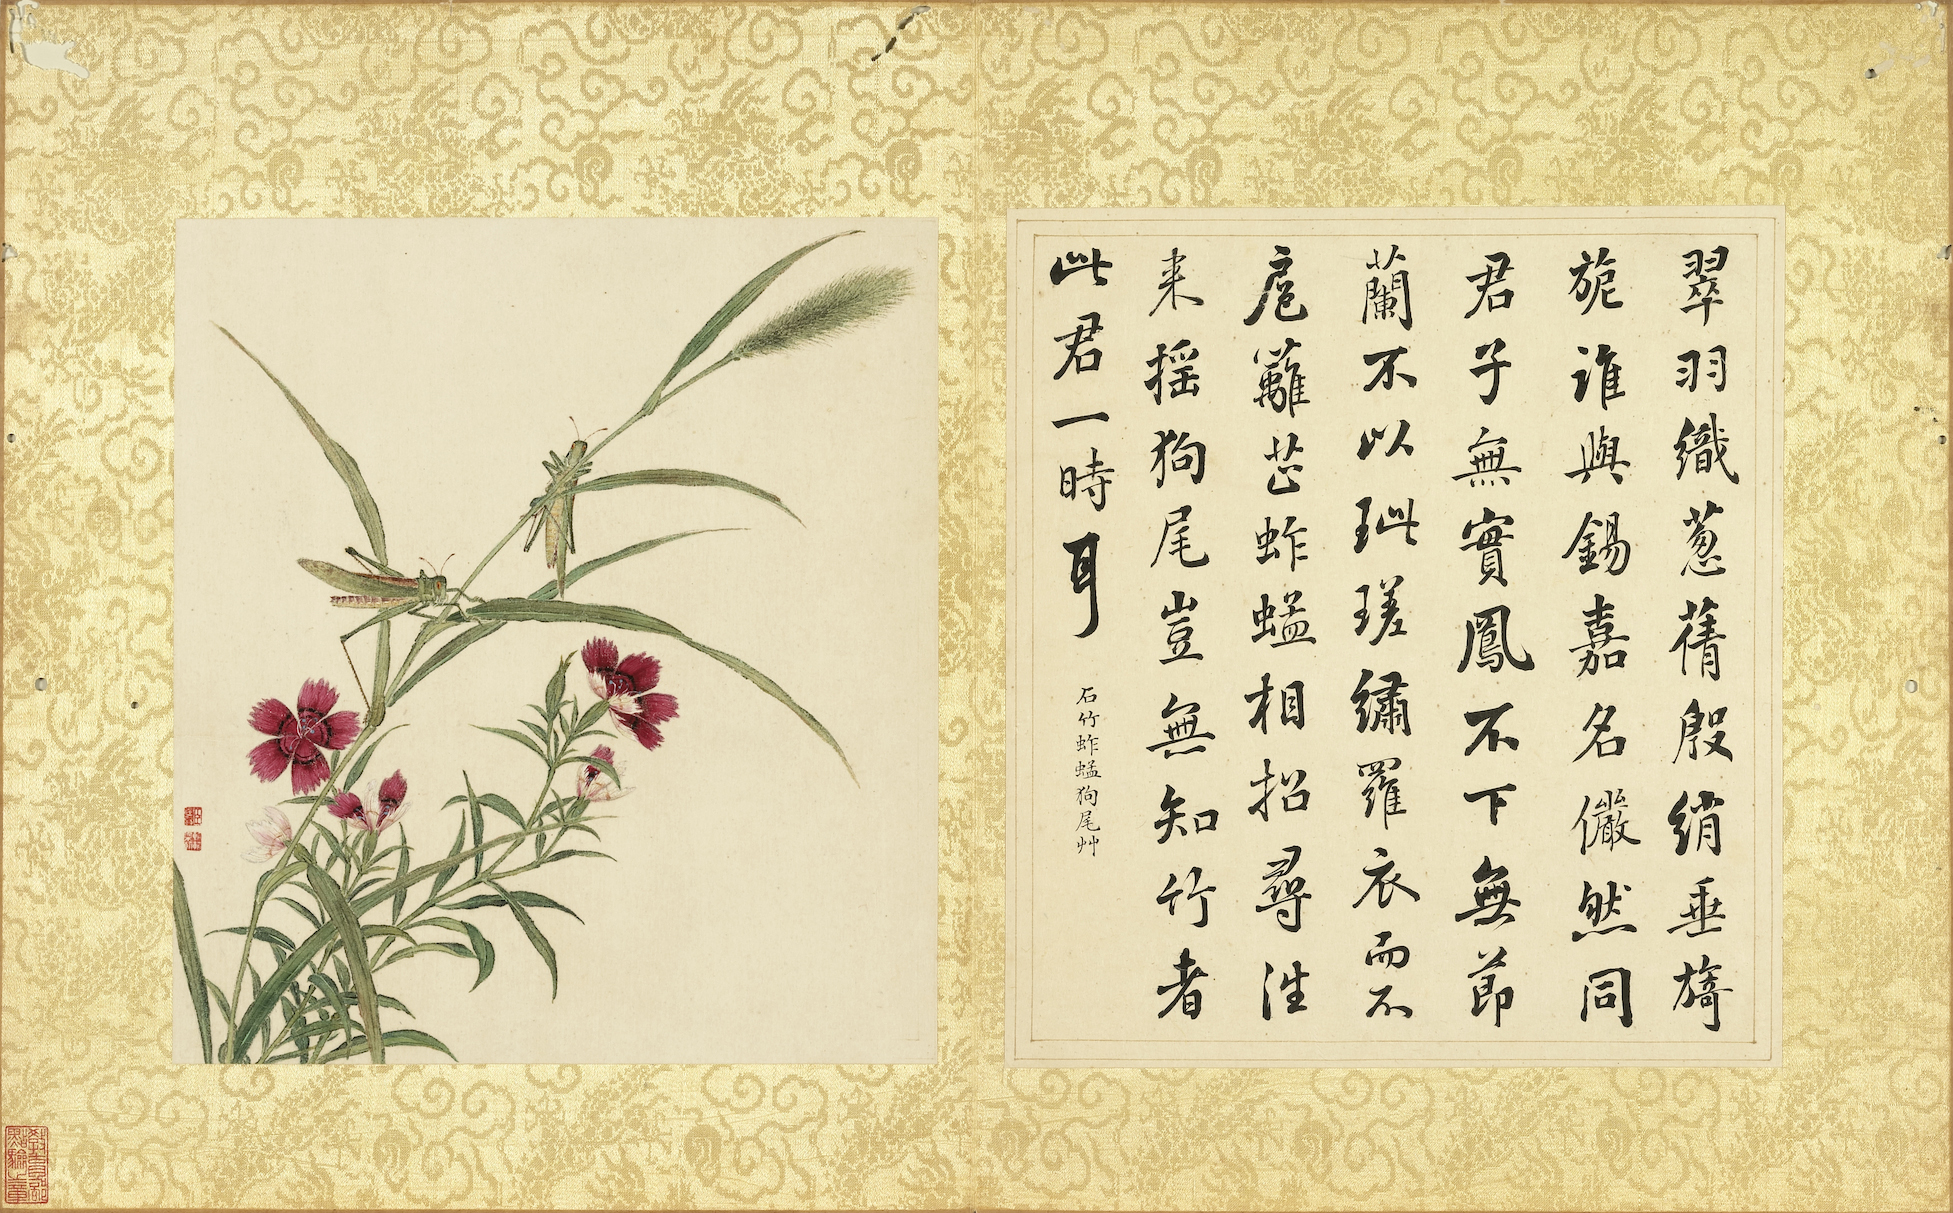 翠羽織蔥蒨殷綃垂旖
旎誰與錫嘉名儼然同
君子無實鳳不下無節
蘭不以玼瑳繡羅衣而不
扈蘺芷蚱蜢相招尋往
来摇狗尾豈無知竹者
此君一時耳
石竹蚱蜢狗尾艸
教育部
點驗之章